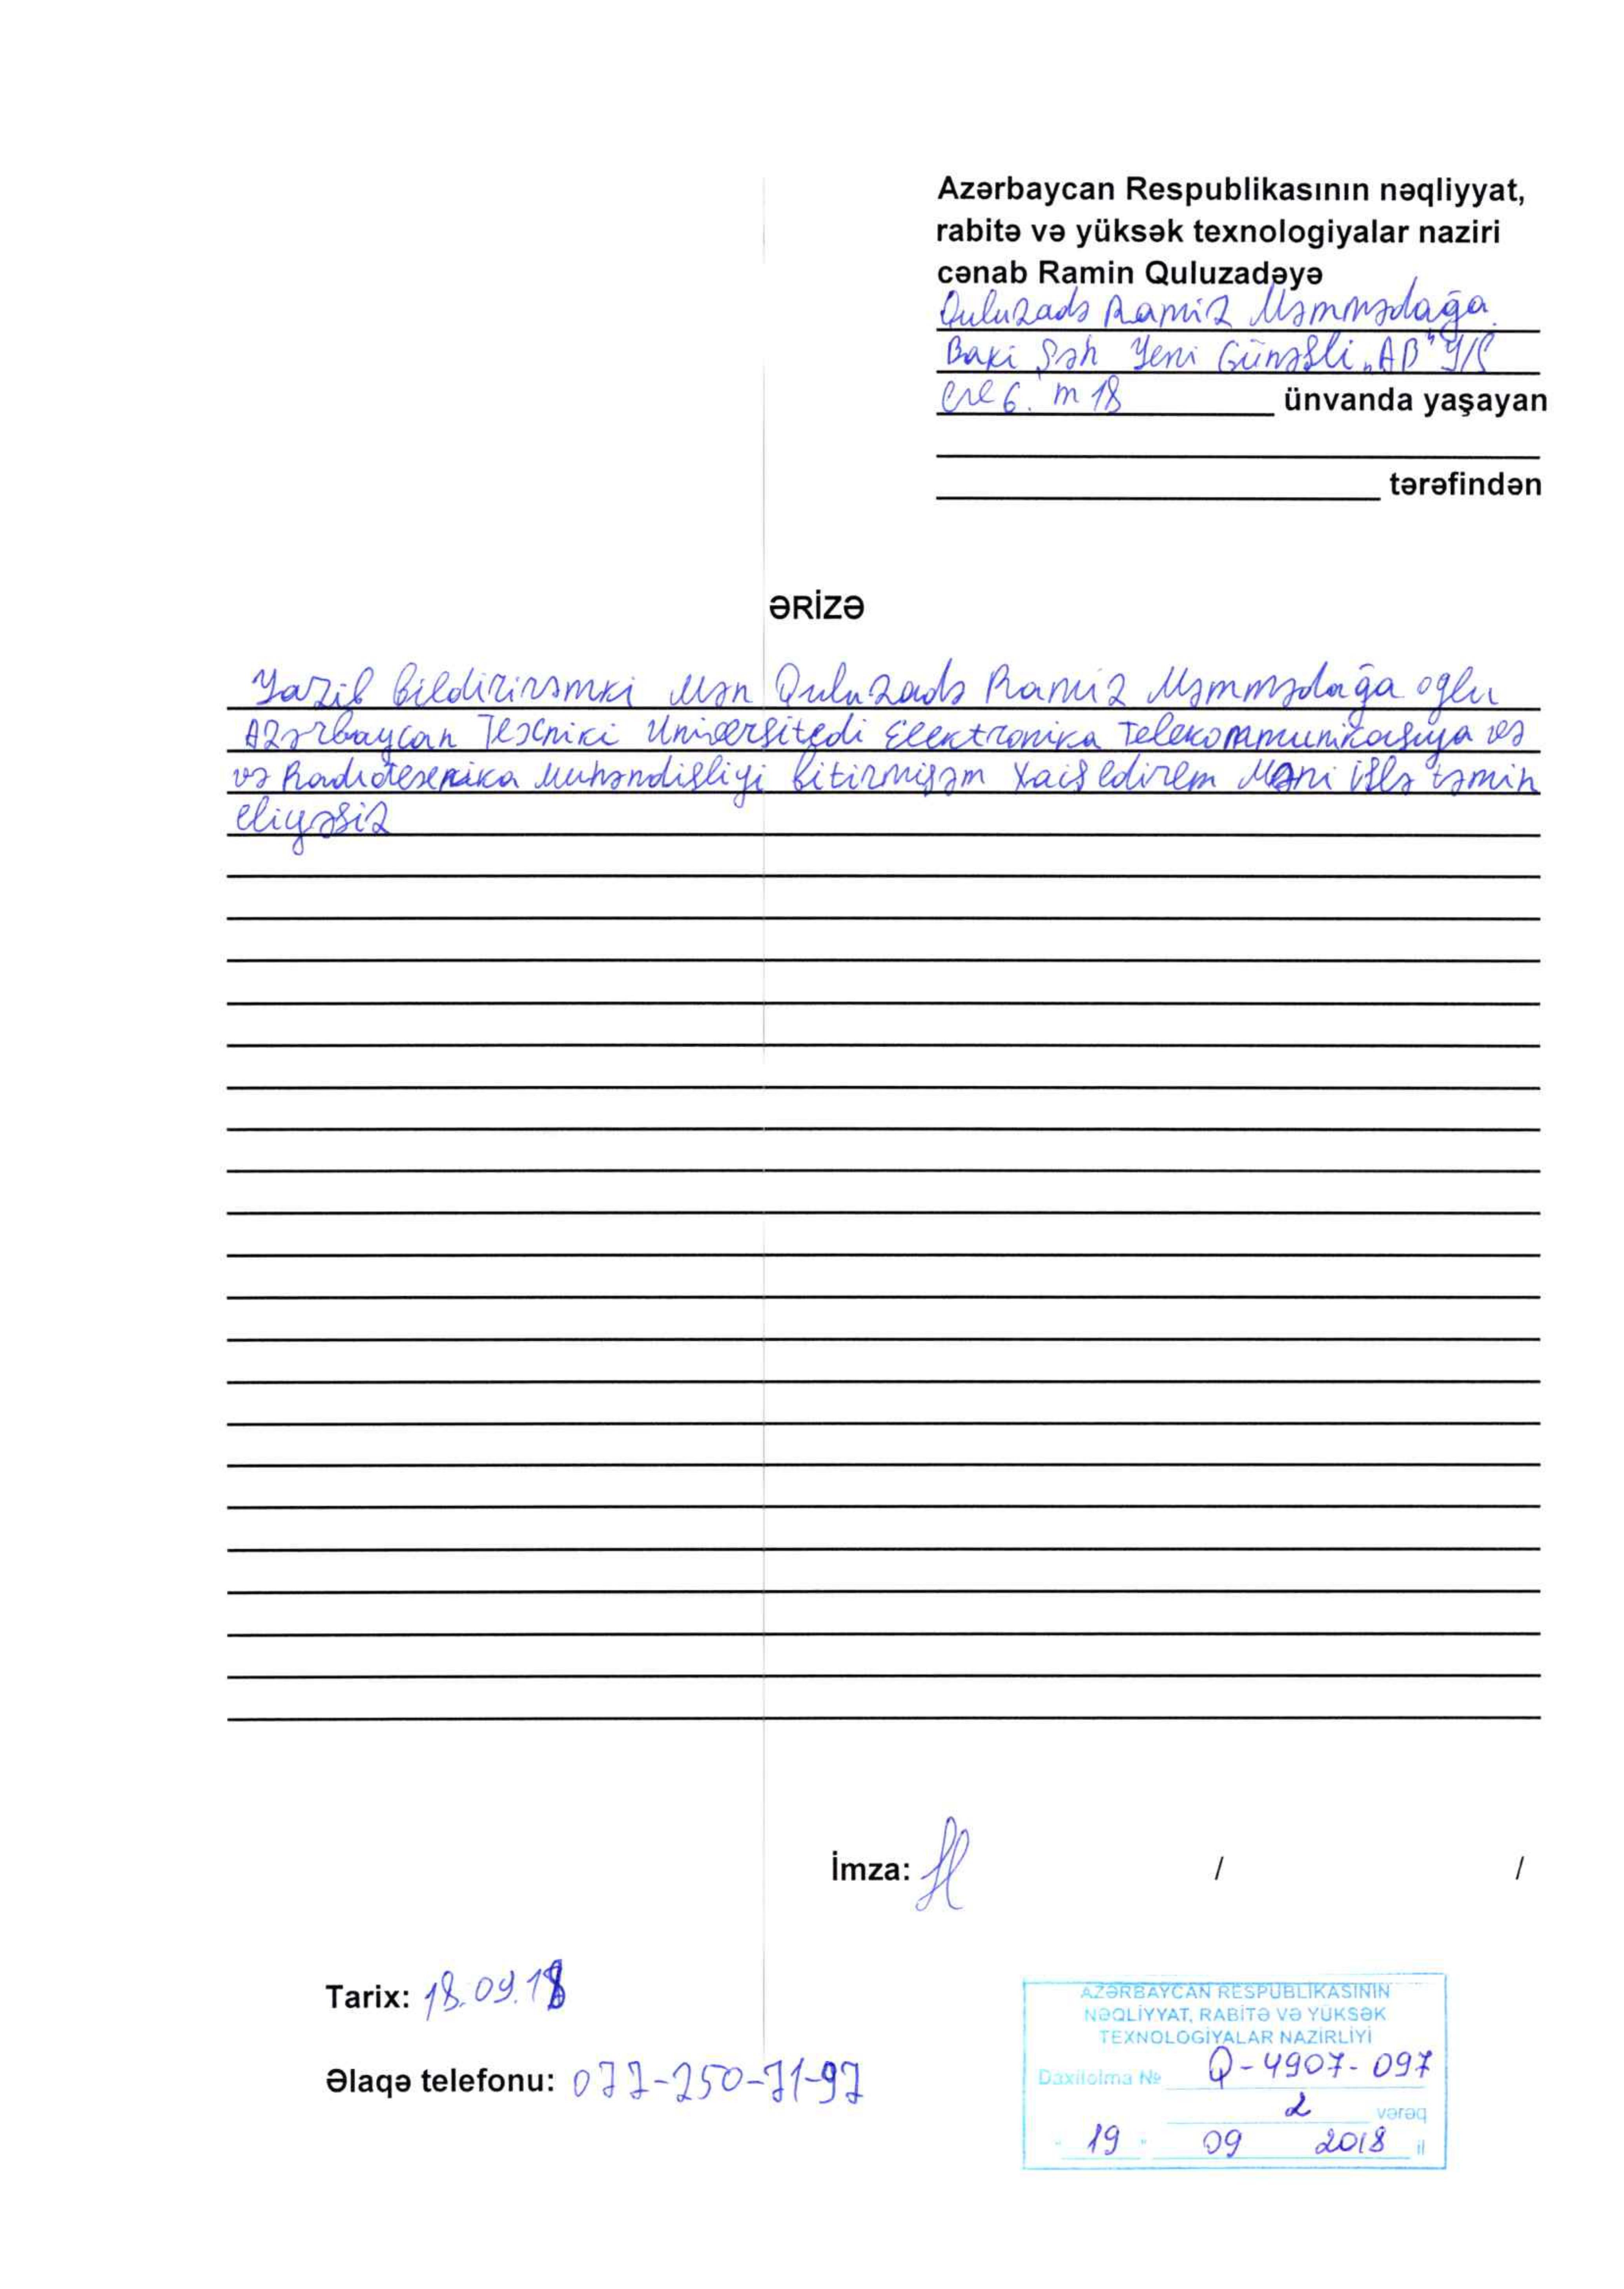 Azərbaycan Respublikasının nəqliyyat,
rabitə və yüksək texnologiyalar naziri
cənab Ramin Quluzadəyə
Quluzadə Ramiz Məmmədağa
Baki Şəh Yeni Günəşli „AB" Y/S
m 18 ünvanda yaşayan
tərəfindən
ƏRİZƏ
Yazib bildirirəmki Mən Quluzadə Ramiz Məmmədağa oglu
Azərbaycan Texniki Universitedi Elektronika Telekommunikasiya və
və Radiotexnika Muhəndisliyi bitirmişəm Xaiş edirem Məni işlə təmin
eliyəsiz
İmza: / /
Tarix: 18.09.18
Əlaqə telefonu: 077-250-71-97
AZƏRBAYCAN RESPUBLİKASININ
NƏQLİYYAT, RABİTƏ VƏ YÜKSƏK
TEXNOLOGİYALAR NAZİRLİYİ
Daxilolma № Q-4907-097
2 vərəq
" 19 " 09 2018 il